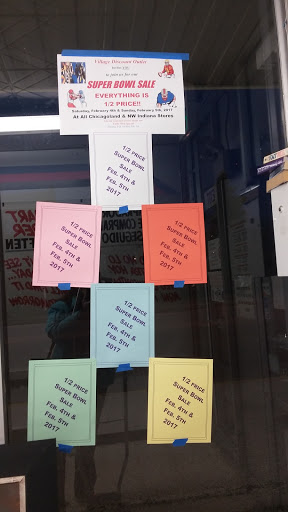 Village Discount Outlet
SUPER BOWL SALE
EVERYTHING IS
1/2 PRICE!!
Saturday, February 4th & Sunday, February 5th, 2017
At All Chicagoland & NW Indiana Stores
1/2 PRICE
SUPER BOWL
SALE
FEB. 4TH &
FEB. 5TH
2017
1/2 PRICE
SUPER BOWL
SALE
FEB. 4TH &
FEB. 5TH
2017
1/2 PRICE
SUPER BOWL
SALE
FEB. 4TH &
FEB. 5TH
2017
1/2 PRICE
SUPER BOWL
SALE
FEB. 4TH &
FEB. 5TH
2017
1/2 PRICE
SUPER BOWL
SALE
FEB. 4TH &
FEB. 5TH
2017
1/2 PRICE
SUPER BOWL
SALE
FEB. 4TH &
FEB. 5TH
2017